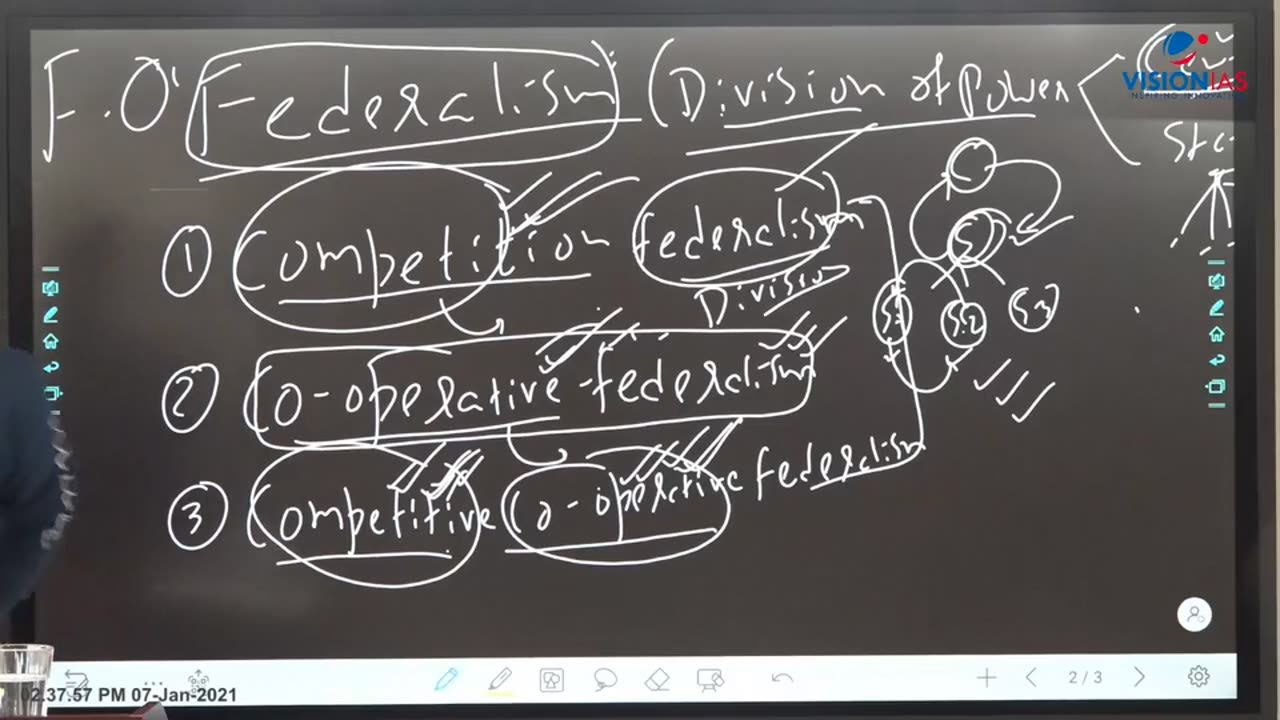 F.O' Federalism (Division of Power
VISIONIAS
INSPIRING INNOVATION
① Competition federalism
Division
S
S.1 S.2 S.3
② Co-operative federalism
③ Competitive Co-operative federalism
2/3
02.37.57 PM 07-Jan-2021